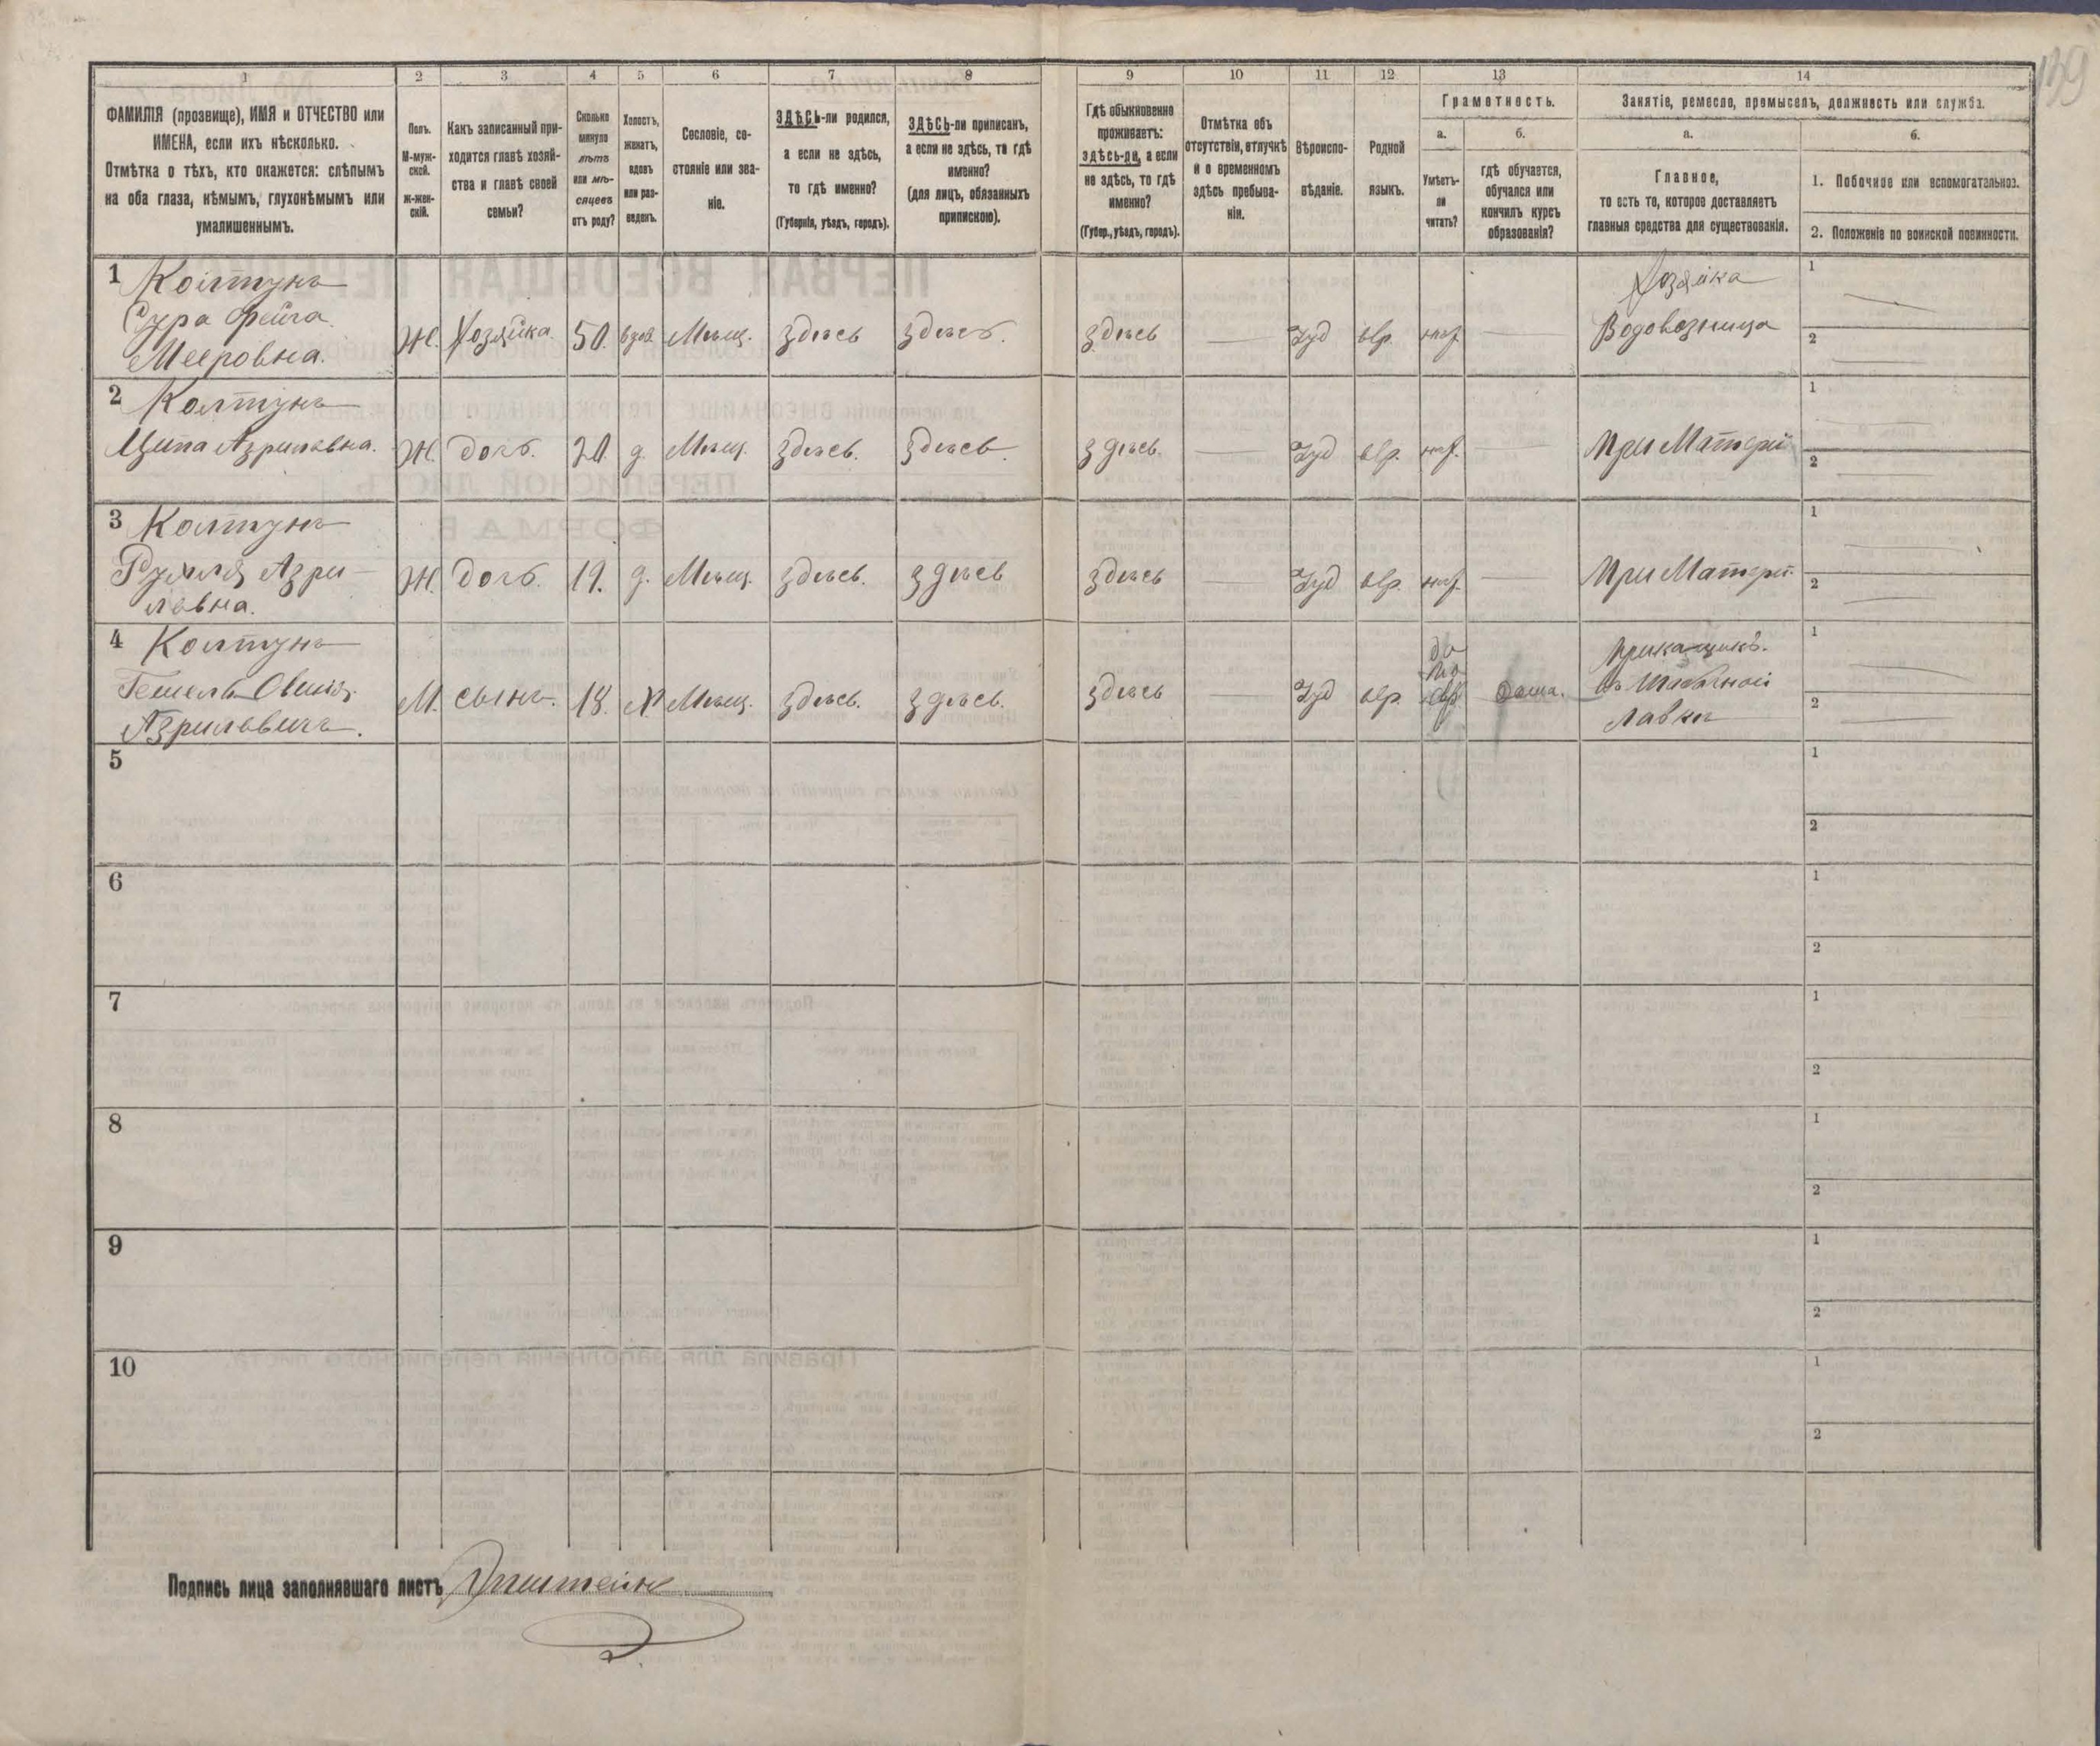 139
1 2 3 4 5 6 7 8 9 10 11 12 13 14
ФАМИЛІЯ (прозвище), ИМЯ и ОТЧЕСТВО или
ИМЕНА, если ихъ нѣсколько.
Отмѣтка о тѣхъ, кто окажется: слѣпымъ
на оба глаза, нѣмымъ, глухонѣмымъ или
умалишеннымъ.
Полъ.
М-муж-
ской.
Ж-жен-
скій.
Какъ записанный при-
ходится главѣ хозяй-
ства и главѣ своей
семьи?
Сколько
минуло
лѣтъ
или мѣ-
сяцевъ
отъ роду?
Холостъ,
женатъ,
вдовъ
или раз-
веденъ.
Сословіе, со-
стояніе или зва-
ніе.
ЗДѢСЬ-ли родился,
а если не здѣсь,
то гдѣ именно?
(Губернія, уѣздъ, городъ).
ЗДѢСЬ-ли приписанъ,
а если не здѣсь, то гдѣ
именно?
(для лицъ, обязанныхъ
припискою).
Гдѣ обыкновенно
проживаетъ:
здѣсь-ли, а если
не здѣсь, то гдѣ
именно?
(Губер., уѣздъ, городъ).
Отмѣтка объ
отсутствіи, отлучкѣ
и о временномъ
здѣсь пребыва-
ніи.
Вѣроиспо-
вѣданіе.
Родной
языкъ.
Грамотность.
а.
Умѣетъ-
ли
читать?
б.
гдѣ обучается,
обучался или
кончилъ курсъ
образованія?
Занятіе, ремесло, промыселъ, должность или служба.
а.
Главное,
то есть то, которое доставляетъ
главныя средства для существованія.
б.
1. Побочное или вспомогательное.
2. Положеніе по воинской повинности.
1 Колтунъ
Сура Фейга
Мееровна.
Ж. Хозяйка. 50. вдов. Мѣщ. здѣсь здѣсь. здѣсь — Іуд евр. нѣт. —
Хозяйка
Водовозница
1
2
2 Колтунъ
Ципа Азриловна.
Ж. дочь. 20. д. Мѣщ. здѣсь. здѣсь. здѣсь. — Іуд евр. нѣт. — При Матери
1
2
3 Колтунъ
Рухля Азри-
ловна.
Ж. дочь. 19. д. Мѣщ. здѣсь. здѣсь здѣсь — Іуд евр. нѣт. — При Матери.
1
2
4 Колтунъ
Гешель Овшія
Азрилевичъ.
М. сынъ. 18. Х. Мѣщ. здѣсь. здѣсь. здѣсь — Іуд евр.
да
по
евр.
дома.
Прикащикъ.
въ Табачной
лавкѣ
1
2
5 1
2
6 1
2
7 1
2
8 1
2
9 1
2
10 1
2
Подпись лица заполнявшаго листъ